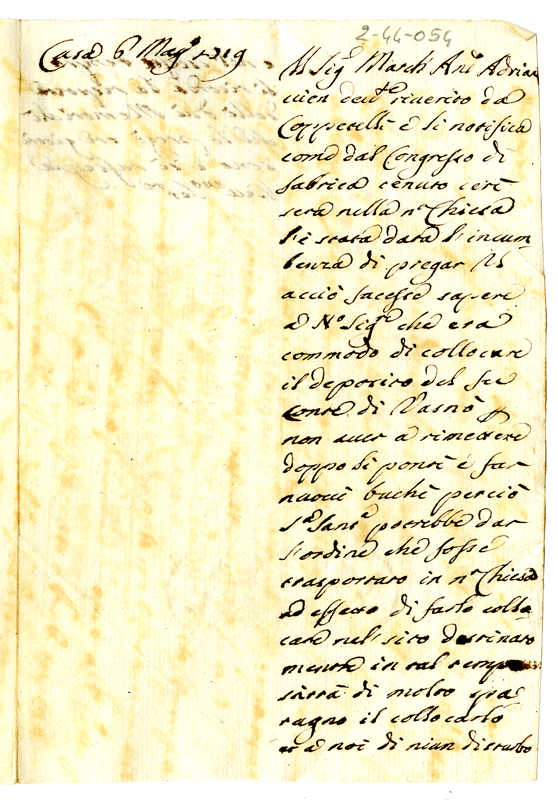 2-44-054
Casa 6 Mag.o 1719
Ill Sig.e March Ant.o Adria
vien dev.te riverito da
Coppetelli e li notifica
come dal Congresso di
fabrica tenuto ieri
sera nella n.ra Chiesa
l'è stata data l'incum-
benza di pregar Ill
acciò facesse sapere
a N.o Sig.re che era
commodo di collocare
il deposito del fu
Conte di Vasnò p
non aver a rimettere
doppo li ponti e far
nuovi buchi perciò
S.a Sant.a potrebbe dar
l'ordine che fosse
trasportato in n.ra Chiesa
ad effetto di farlo collo
care nel sito destinato
mentre in tal tempo
sarrà di molto spa
ragno il collocarlo
e a noi di niun disturbo